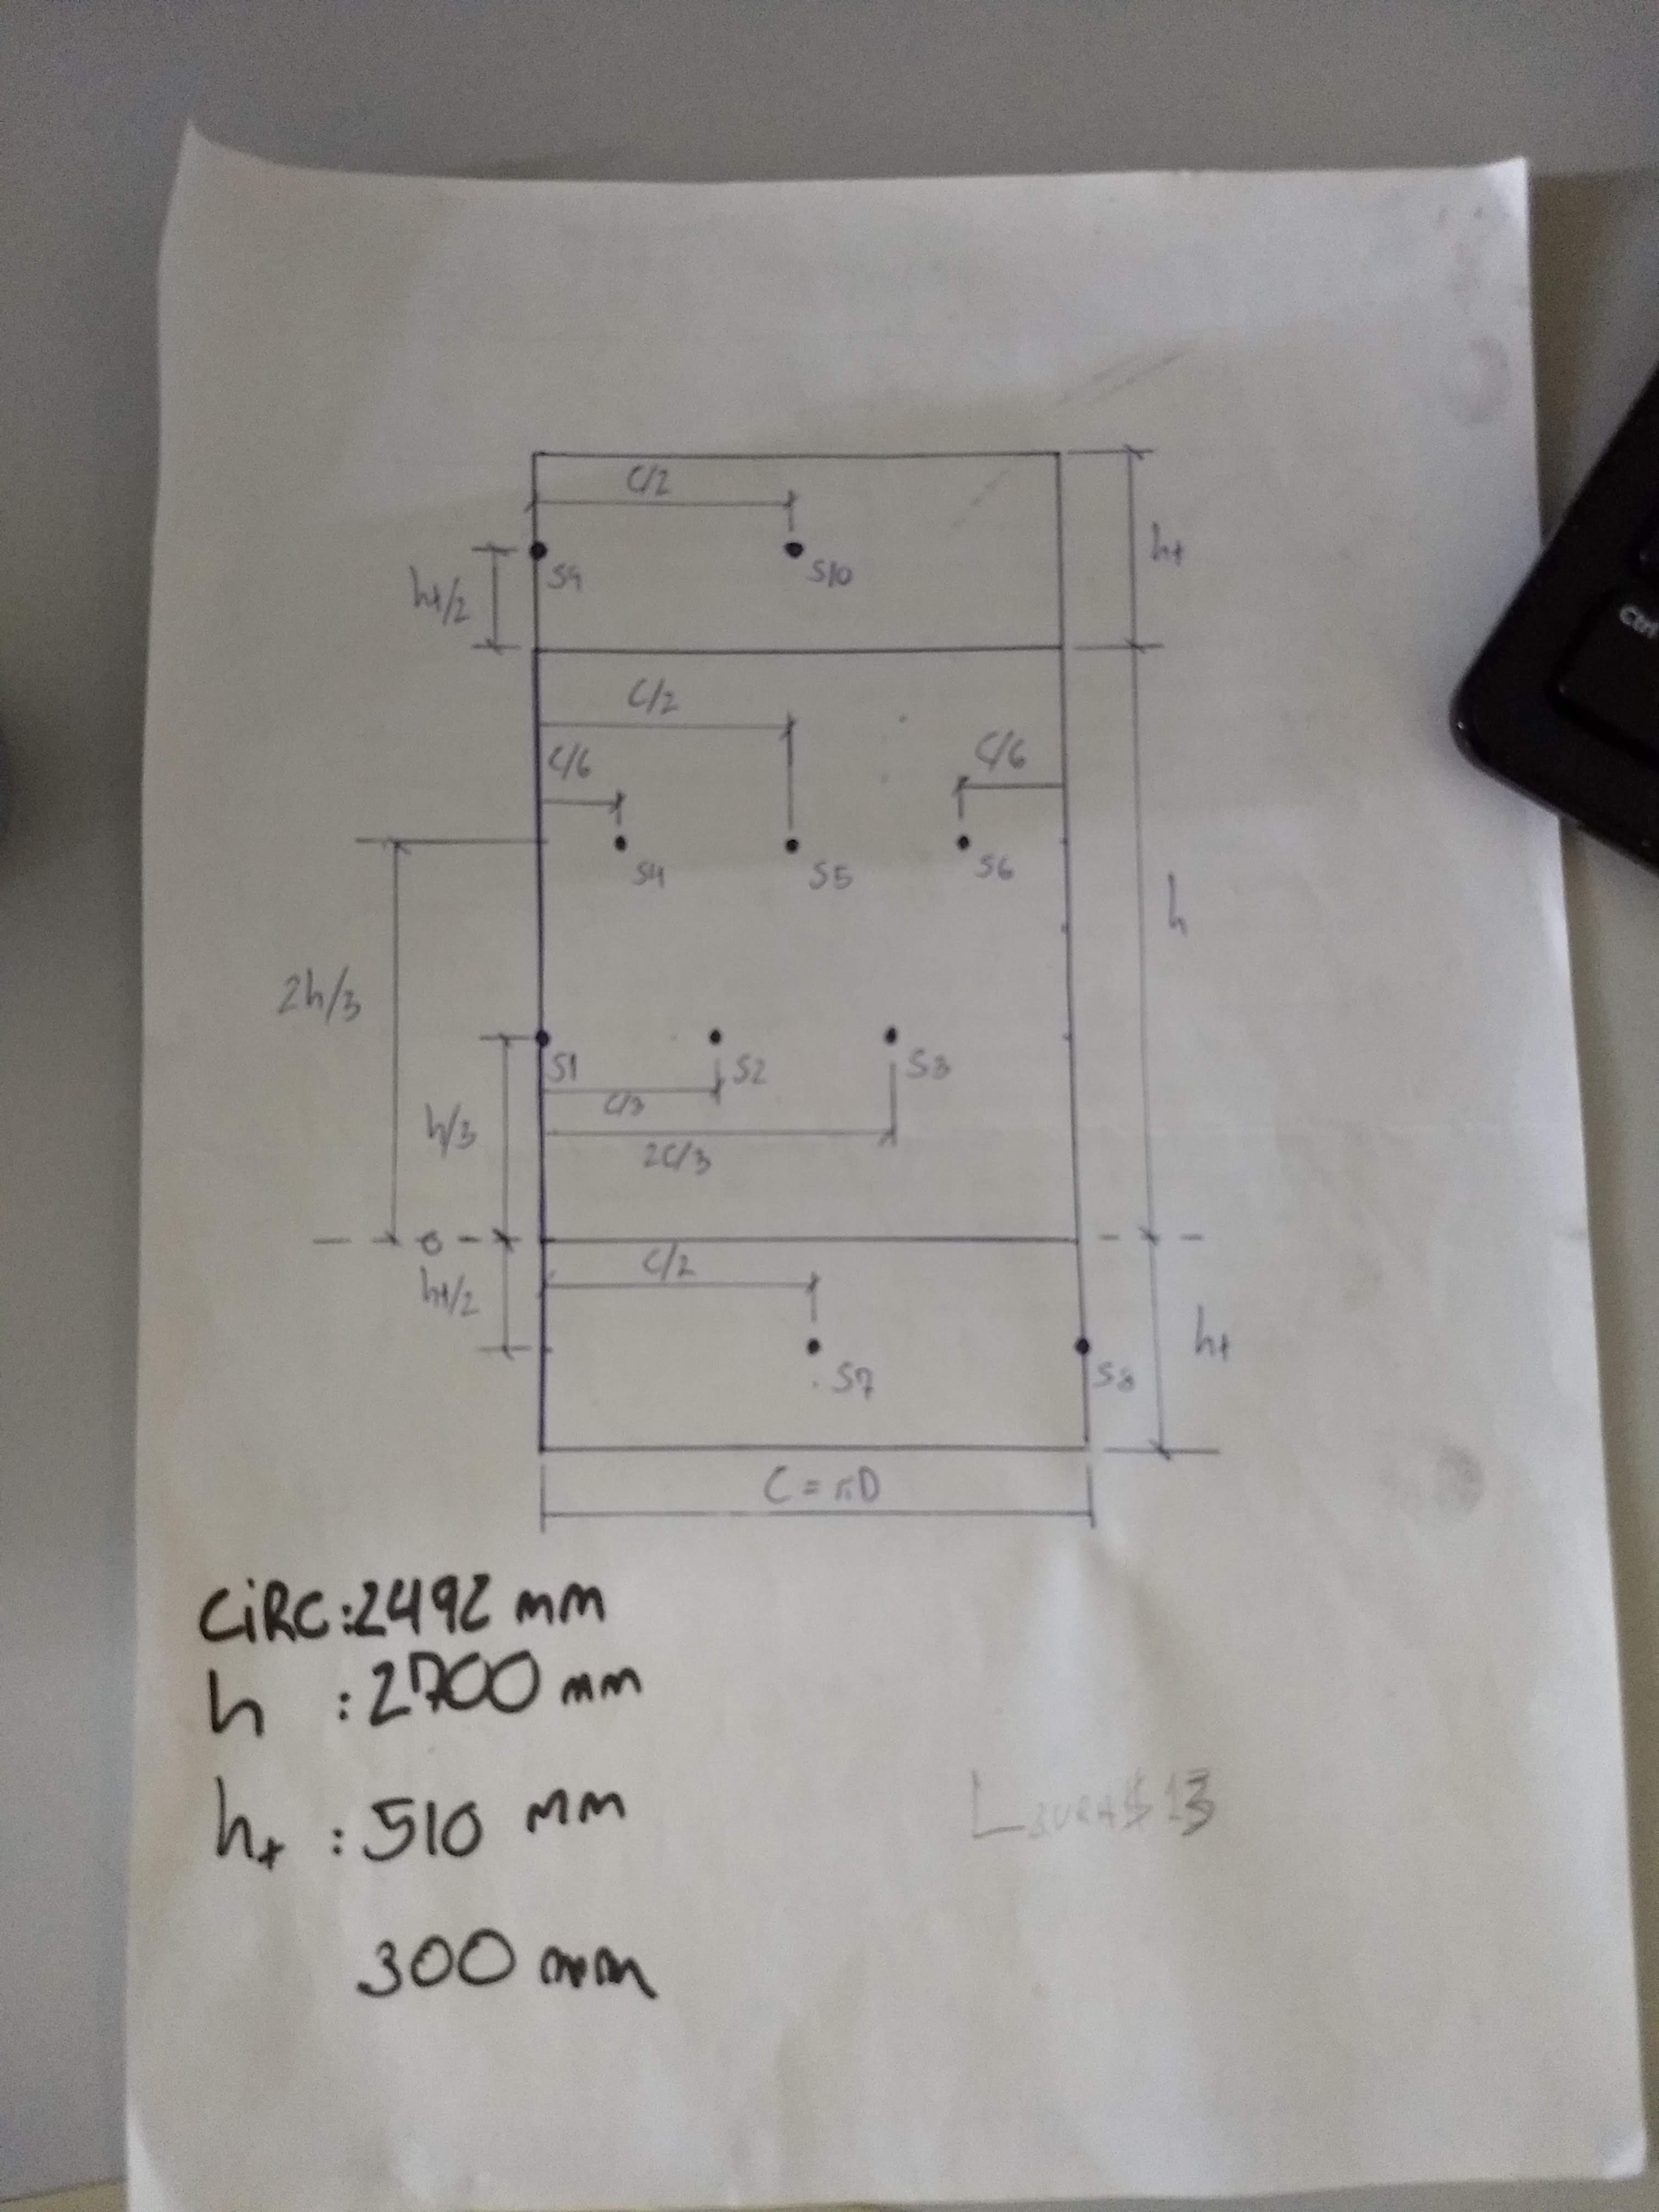 C/2
ht
S9
S10
ht/2
C/2
C/6
C/6
S4
S5
S6
h
2h/3
S1
S2
S3
C/3
h/3
2C/3
0
C/2
ht/2
ht
S7
S8
C = πD
CiRC:2492 mm
h :2700 mm
ht :510 mm
300 mm
Ctrl